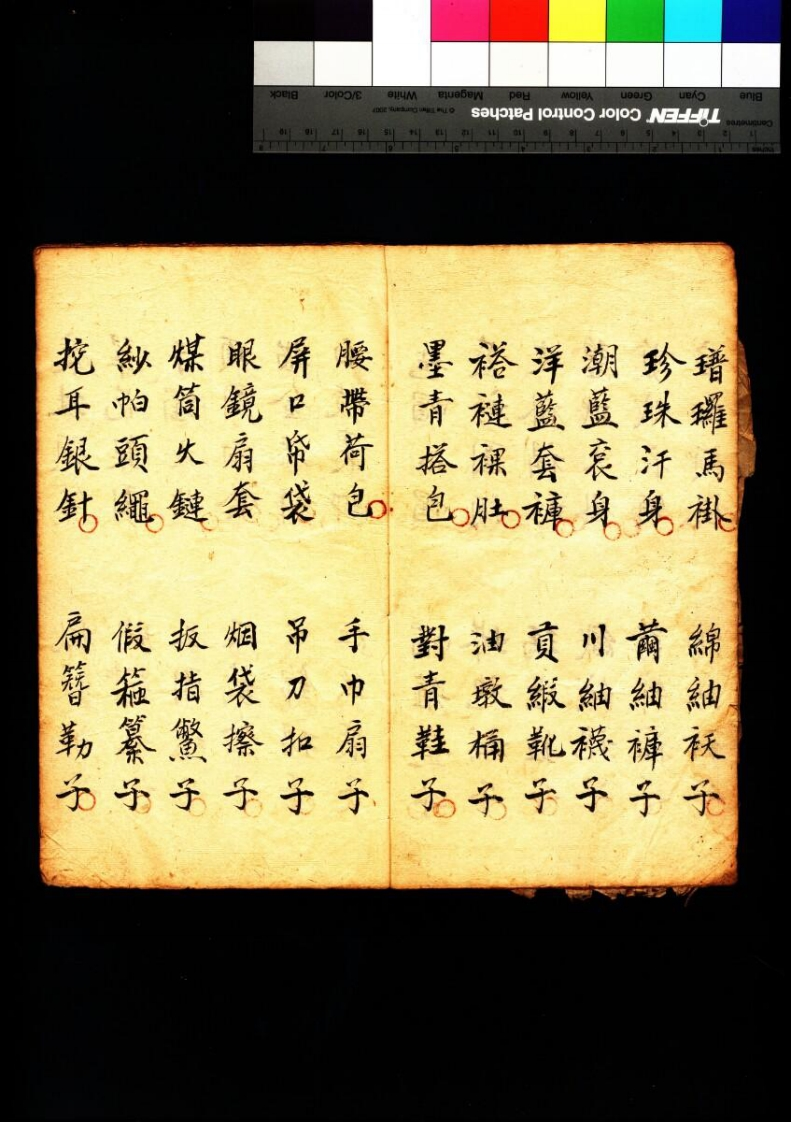 璔瓎馬褂 綿紬袄子
珍珠汗身 繭紬褲子
潮藍衮身 川紬襪子
洋藍套褲 貢緞靴子
褡褳裸肚 油墩桶子
墨青搭包 對青鞋子
腰帶荷包 手巾扇子
屏口帋袋 吊刀扣子
眼鏡扇套 烟袋擦子
煤筒火鏈 扳指鱉子
紗帕頭繩 假箍纂子
挖耳銀針 扁簪勒子
TIFFEN Color Control Patches
© The Tiffen Company, 2007
Blue Cyan Green Yellow Red Magenta White 3/Color Black
Centimetres
Inches